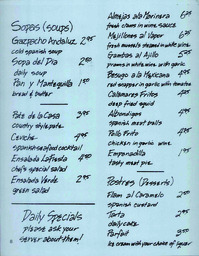 Sopas (soups)
Gazpacho Andaluz 2.95
cold spanish soup
Sopa del Dia 2.50
daily soup
Pan y Mantequilla 1.50
bread & butter
Pate de la Casa 3.95
country style pate
Ceviche 4.95
spanish seafood cocktail
Ensalada La Fiesta 4.50
chef's special salad
Ensalada Verde 2.95
green salad
Daily Specials
please ask your
server about them!
Almejas a la Marinera 6.95
fresh clams in wine sauce
Mejillones al Vapor 6.95
fresh mussels steamed in white wine
Gambas al Ajillo 5.95
prawns in white wine with garlic
Besugo a la Mexicana 4.95
red snapper in garlic with tomatoe
Calamares Fritos 4.95
deep fried squid
Albondigas 4.95
spanish meat balls
Pollo Frito 4.95
chicken in garlic wine
Empanadilla 1.95
tasty meat pie
Postres (Desserts)
Flan al Caramelo 2.50
spanish custard
Torta 2.95
daily cake
Parfait 3.50
ice cream with your choice of liquer